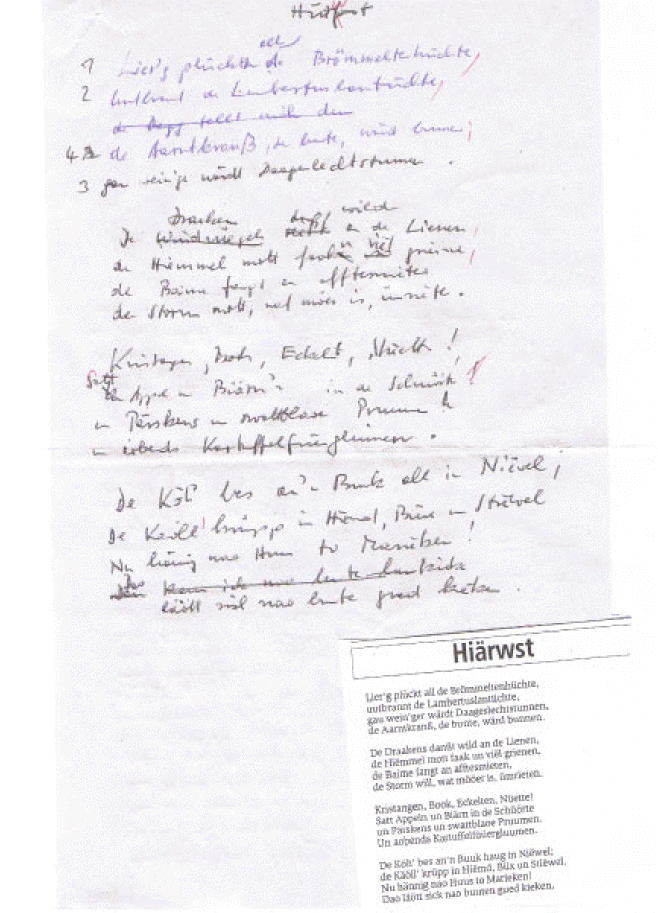 1 Lier'g plückt all de Brömmeltenhüchte,
2 uutbrannt de Lambertuslantüchte,
4 de Aarntkranß, de bunte, wärd bunnen;
3 gau wein'ge wärdt Daageslechtstunnen.
De Draaken danßt wild an de Lienen,
de Hiëmmel mott faak un viël grienen,
de Baime fangt an afftesmieten
de Storm
Kristangen, Book, Eckelt, Nüette!
Satt Appel un Biärn in de Schüörte
un Päskens un swattblaoe Pruumen
un Kartuffelfüerglumen.
De Köh' bes an'n Buuk all in Niëvel,
De Käöll' krüpp in Hiëmd, Büx un Stiëwel
Nu hännig nao Huus to Marieken!
läött sick nao bunte gued kieken.
Hiärwst
Lier'g plückt all de Brömmeltenhüchte,
uutbrannt de Lambertuslantüchte,
gau wein'ger wärdt Daageslechtstunnen,
de Aarntkranß, de bunte, wärd bunnen.
De Draakens danßt wild an de Lienen,
de Hiëmmel mott faak un viël grienen,
de Baime fangt an afftesmieten,
de Storm will, wat möer is, ümrieten.
Kristangen, Book, Eckelten, Nüette!
Satt Appeln un Biärn in de Schüörte
un Päskens un swattblaoe Pruumen.
Un aobends Kartuffelfüerglumen.
De Köh' bes an'n Buuk haug in Niëwel;
de Käöll' krüpp in Hiëmd, Büx un Stiëwel.
Nu hännig nao Huus to Marieken!
Dao läött sick nao bunnen gued kieken.